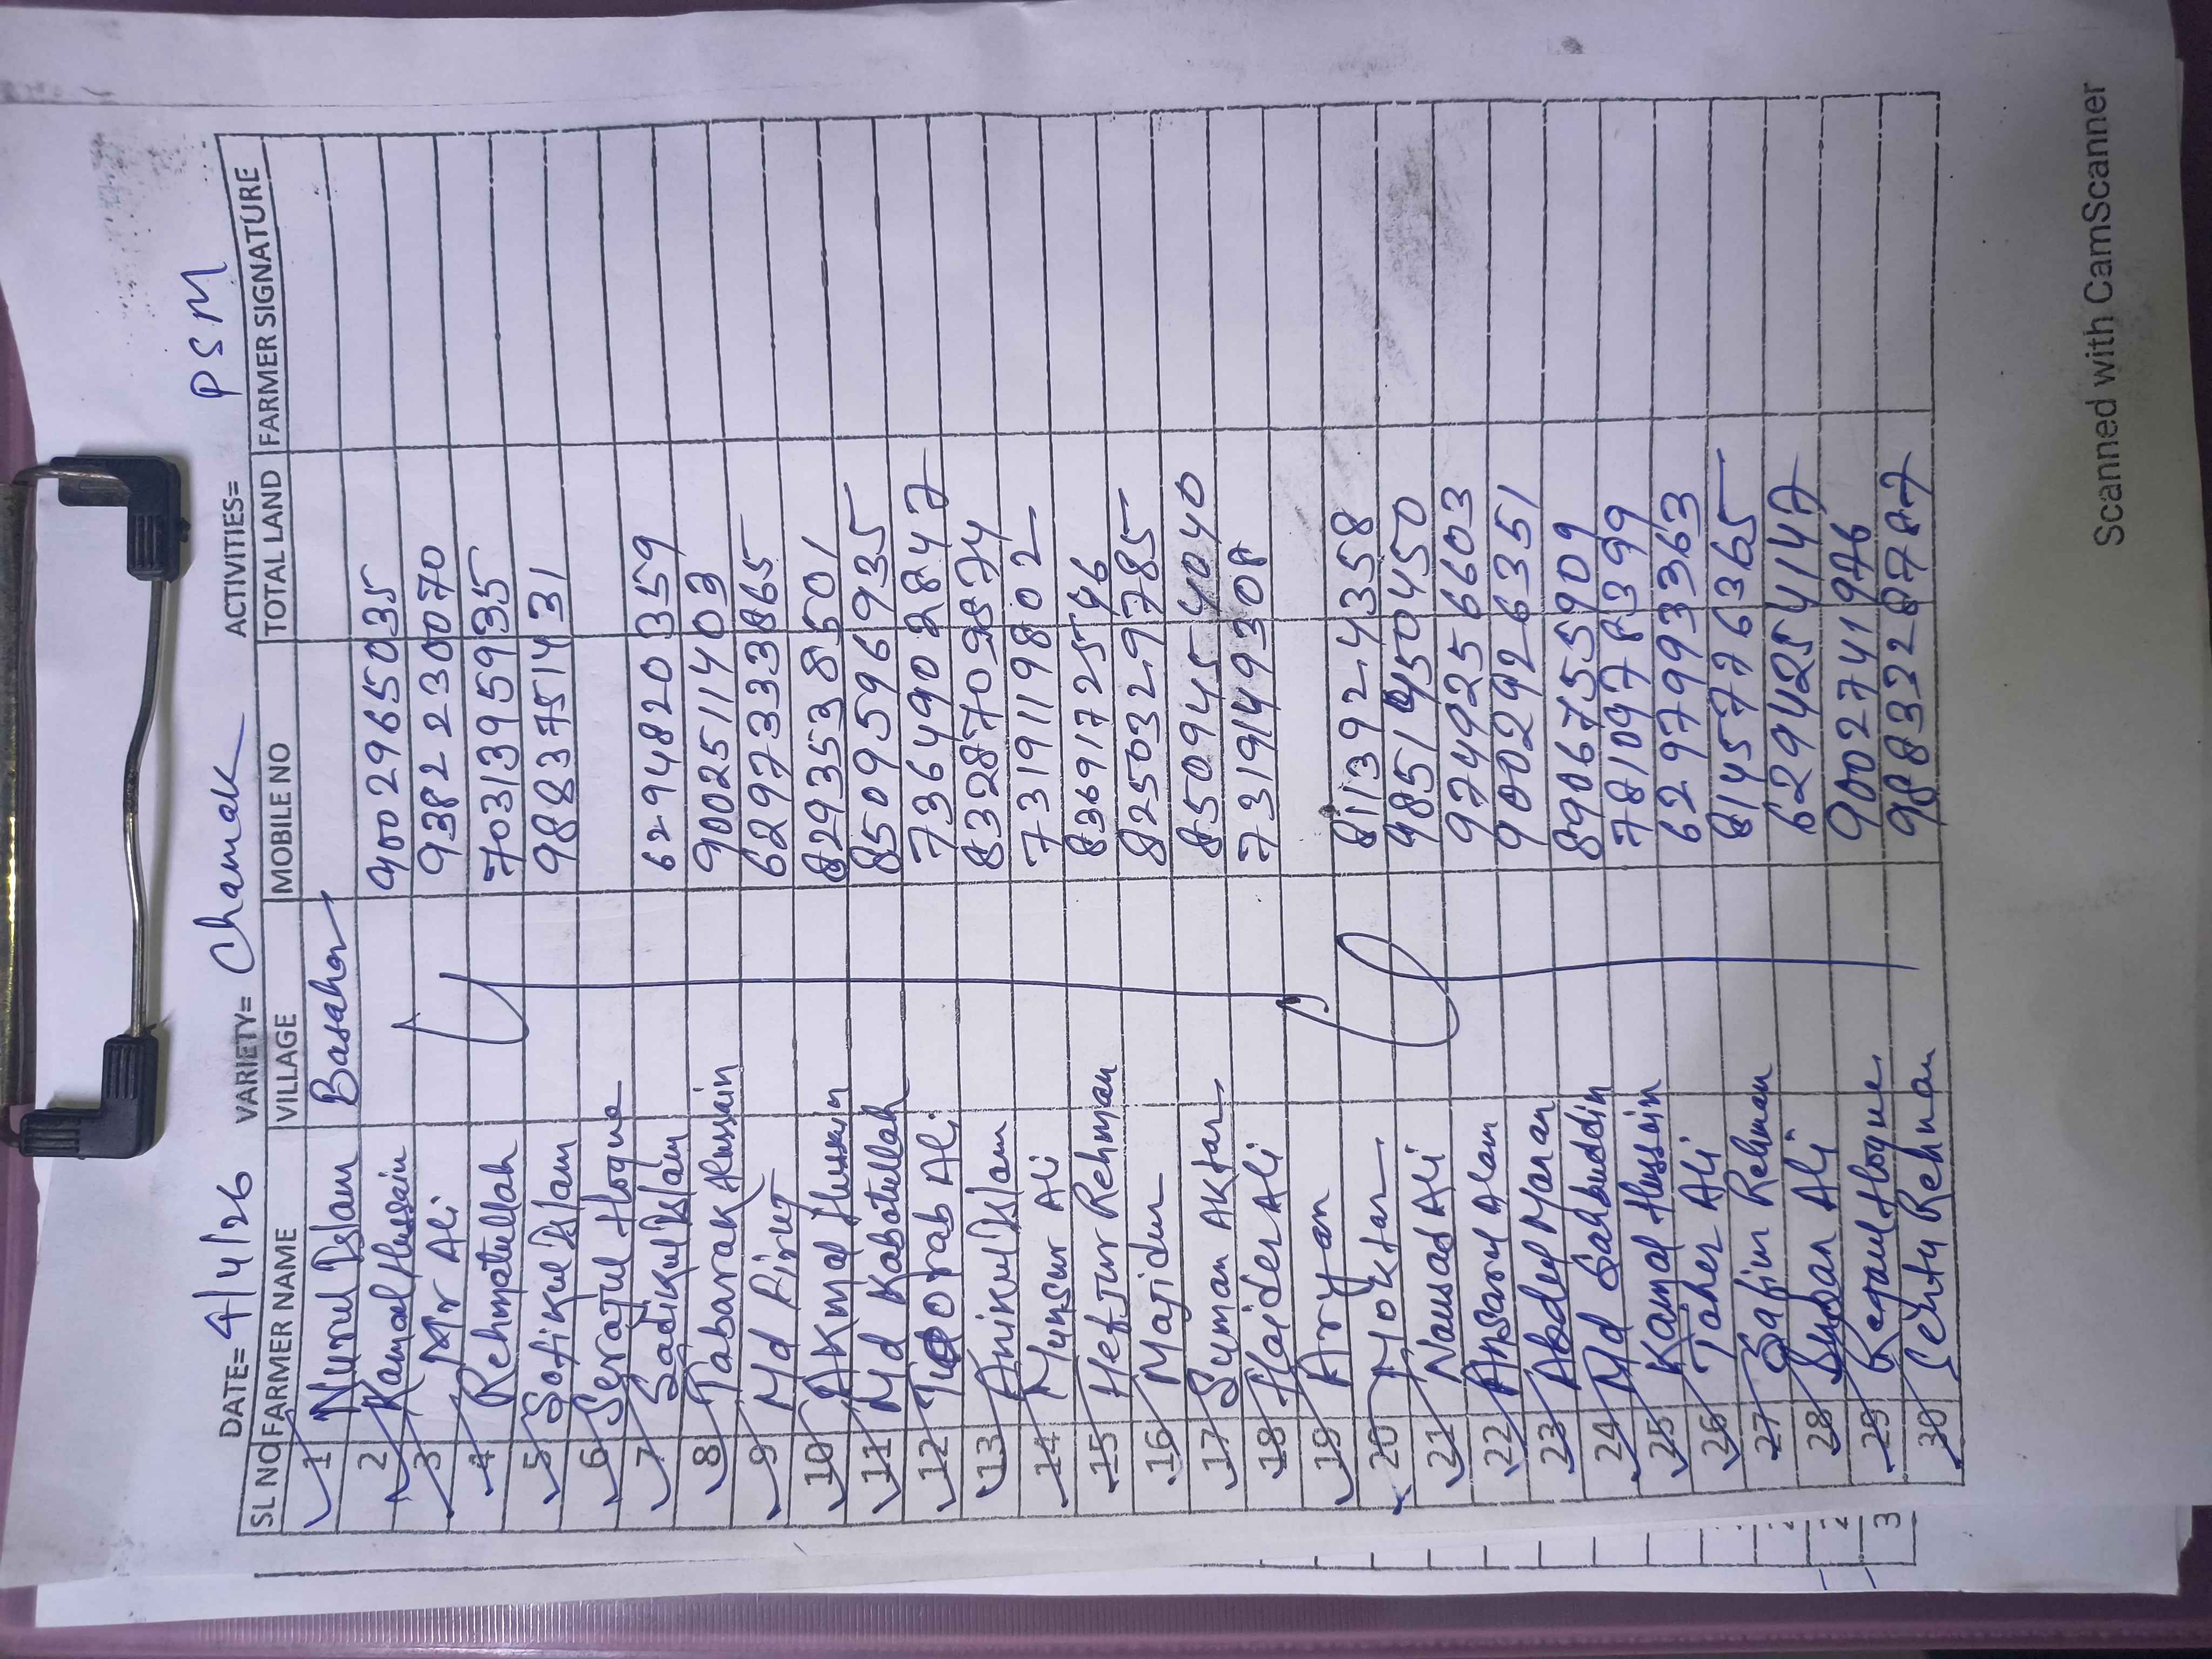 DATE= 4/4/26 VARIETY= Chamak ACTIVITIES= PSM
SL NO FARMER NAME VILLAGE MOBILE NO TOTAL LAND FARMER SIGNATURE
1 Nurul Islam Basahar
2 Kamal Hussain 9002965035
3 Mr Ali 9382230070
4 Rehmatullah 7031395935
5 Sofikul Islam 9883751431
6 Serajul Hoque
7 Sadikul Islam 6294820359
8 Tabarak Hussain 9002511403
9 Md Firoj 6297333865
10 AKmal Hussain 8293538501
11 Md Kabatullah 8509596935
12 Torab Ali 7364902847
13 Anikul Islam 8328709874
14 Munsur Ali 7319119802
15 Hefjur Rehman 8369172546
16 Majidur 8250329785
17 Suman AKtar 8509454040
18 Haider Ali 7319149308
19 Aryan
20 Moktar 8113924358
21 Nausad Ali 9851450450
22 Ansarul Alam 9749256603
23 Abdul Manan 9002926351
24 Md Sahabuddin 8906755909
25 Kamal Hussain 7810978399
26 Taher Ali 6297993363
27 Safiur Rehman 8145776365
28 Ali 6294254147
29 Rejaul Hoque 9002741976
30 Sentu Rehman 9883328787
3
Scanned with CamScanner